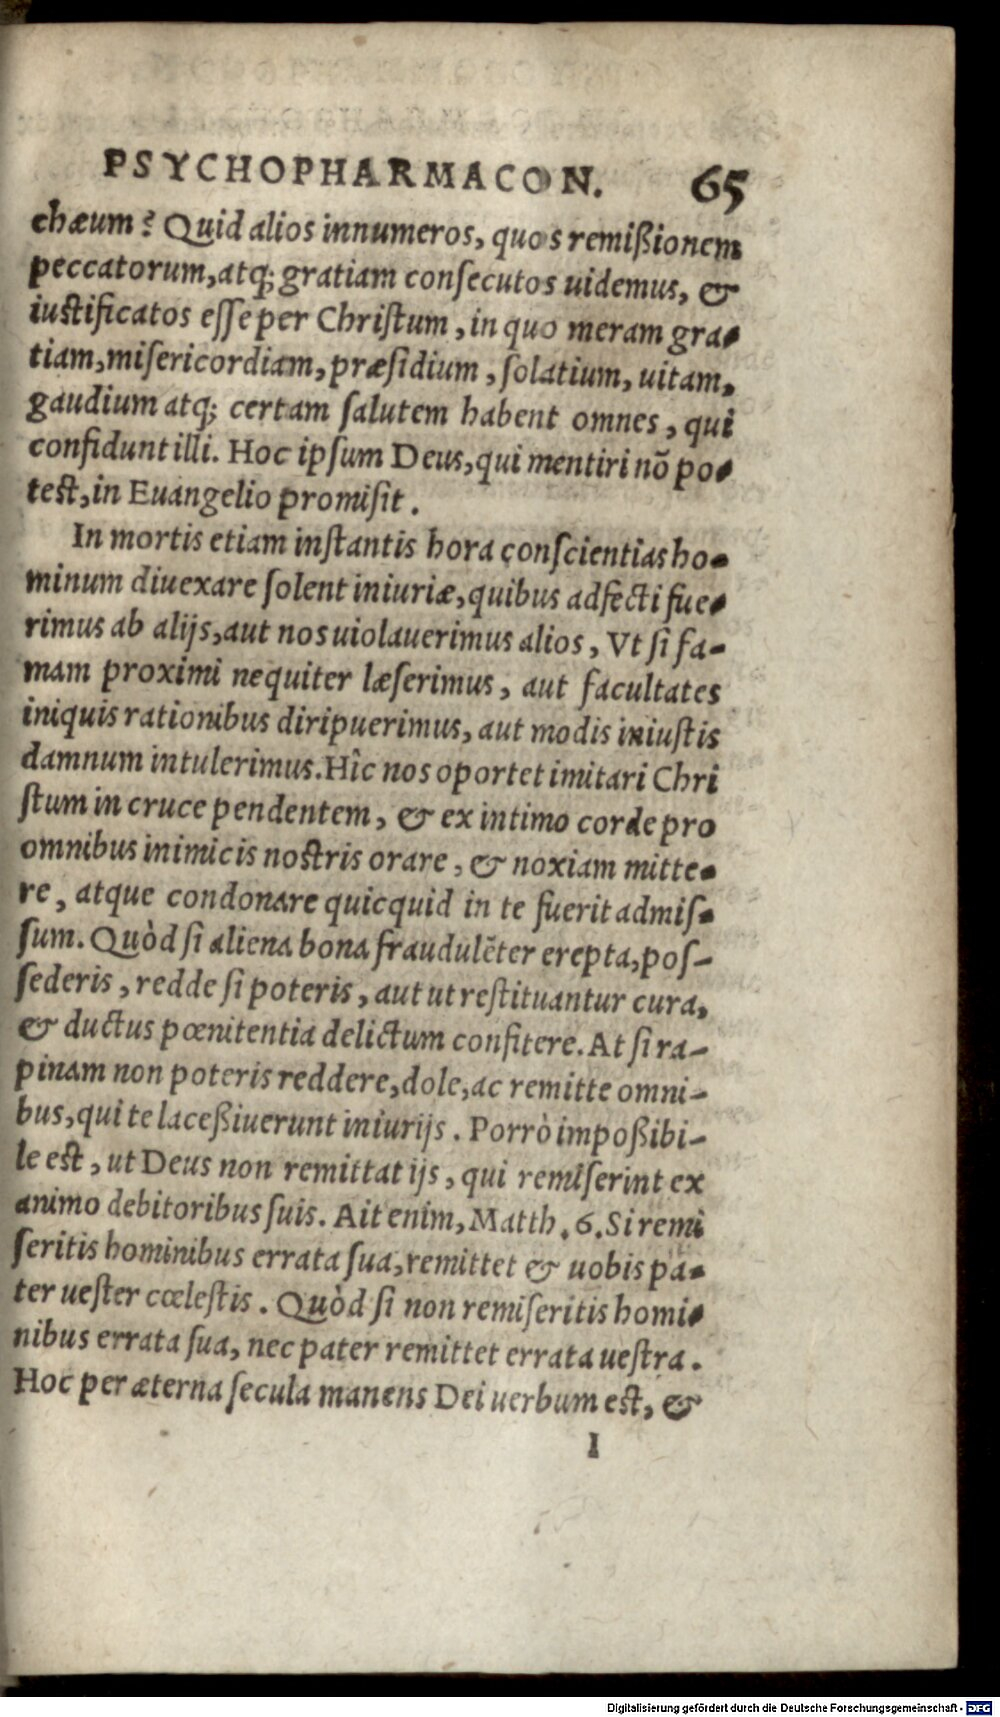 PSYCHOPHARMACON. 65
chæum? Quid alios innumeros, quos remißionem
peccatorum, atq; gratiam conſecutos uidemus, &
iuſtificatos eſſe per Chriſtum, in quo meram gra-
tiam, miſericordiam, præſidium, ſolatium, uitam,
gaudium atq; certam ſalutem habent omnes, qui
confidunt illi. Hoc ipſum Deus, qui mentiri nō po-
teſt, in Euangelio promiſit.
In mortis etiam inſtantis hora conſcientias ho-
minum diuexare ſolent iniuriæ, quibus adfecti fue-
rimus ab alijs, aut nos uiolauerimus alios, Vt ſi fa-
mam proximi nequiter læſerimus, aut facultates
iniquis rationibus diripuerimus, aut modis iniuſtis
damnum intulerimus. Hîc nos oportet imitari Chri
ſtum in cruce pendentem, & ex intimo corde pro
omnibus inimicis noſtris orare, & noxiam mitte-
re, atque condonare quicquid in te fuerit admiſ-
ſum. Quòd ſi aliena bona fraudulēter erepta, poſ-
ſederis, redde ſi poteris, aut ut reſtituantur cura,
& ductus pœnitentia delictum confitere. At ſi ra-
pinam non poteris reddere, dole, ac remitte omni-
bus, qui te laceßiuerunt iniurijs. Porrò impoßibi-
le eſt, ut Deus non remittat ijs, qui remiſerint ex
animo debitoribus ſuis. Ait enim, Matth. 6. Si remi
ſeritis hominibus errata ſua, remittet & uobis pa-
ter ueſter cœleſtis. Quòd ſi non remiſeritis homi-
nibus errata ſua, nec pater remittet errata ueſtra.
Hoc per æterna ſecula manens Dei uerbum eſt, &
I
Digitalisierung gefördert durch die Deutsche Forschungsgemeinschaft - DFG